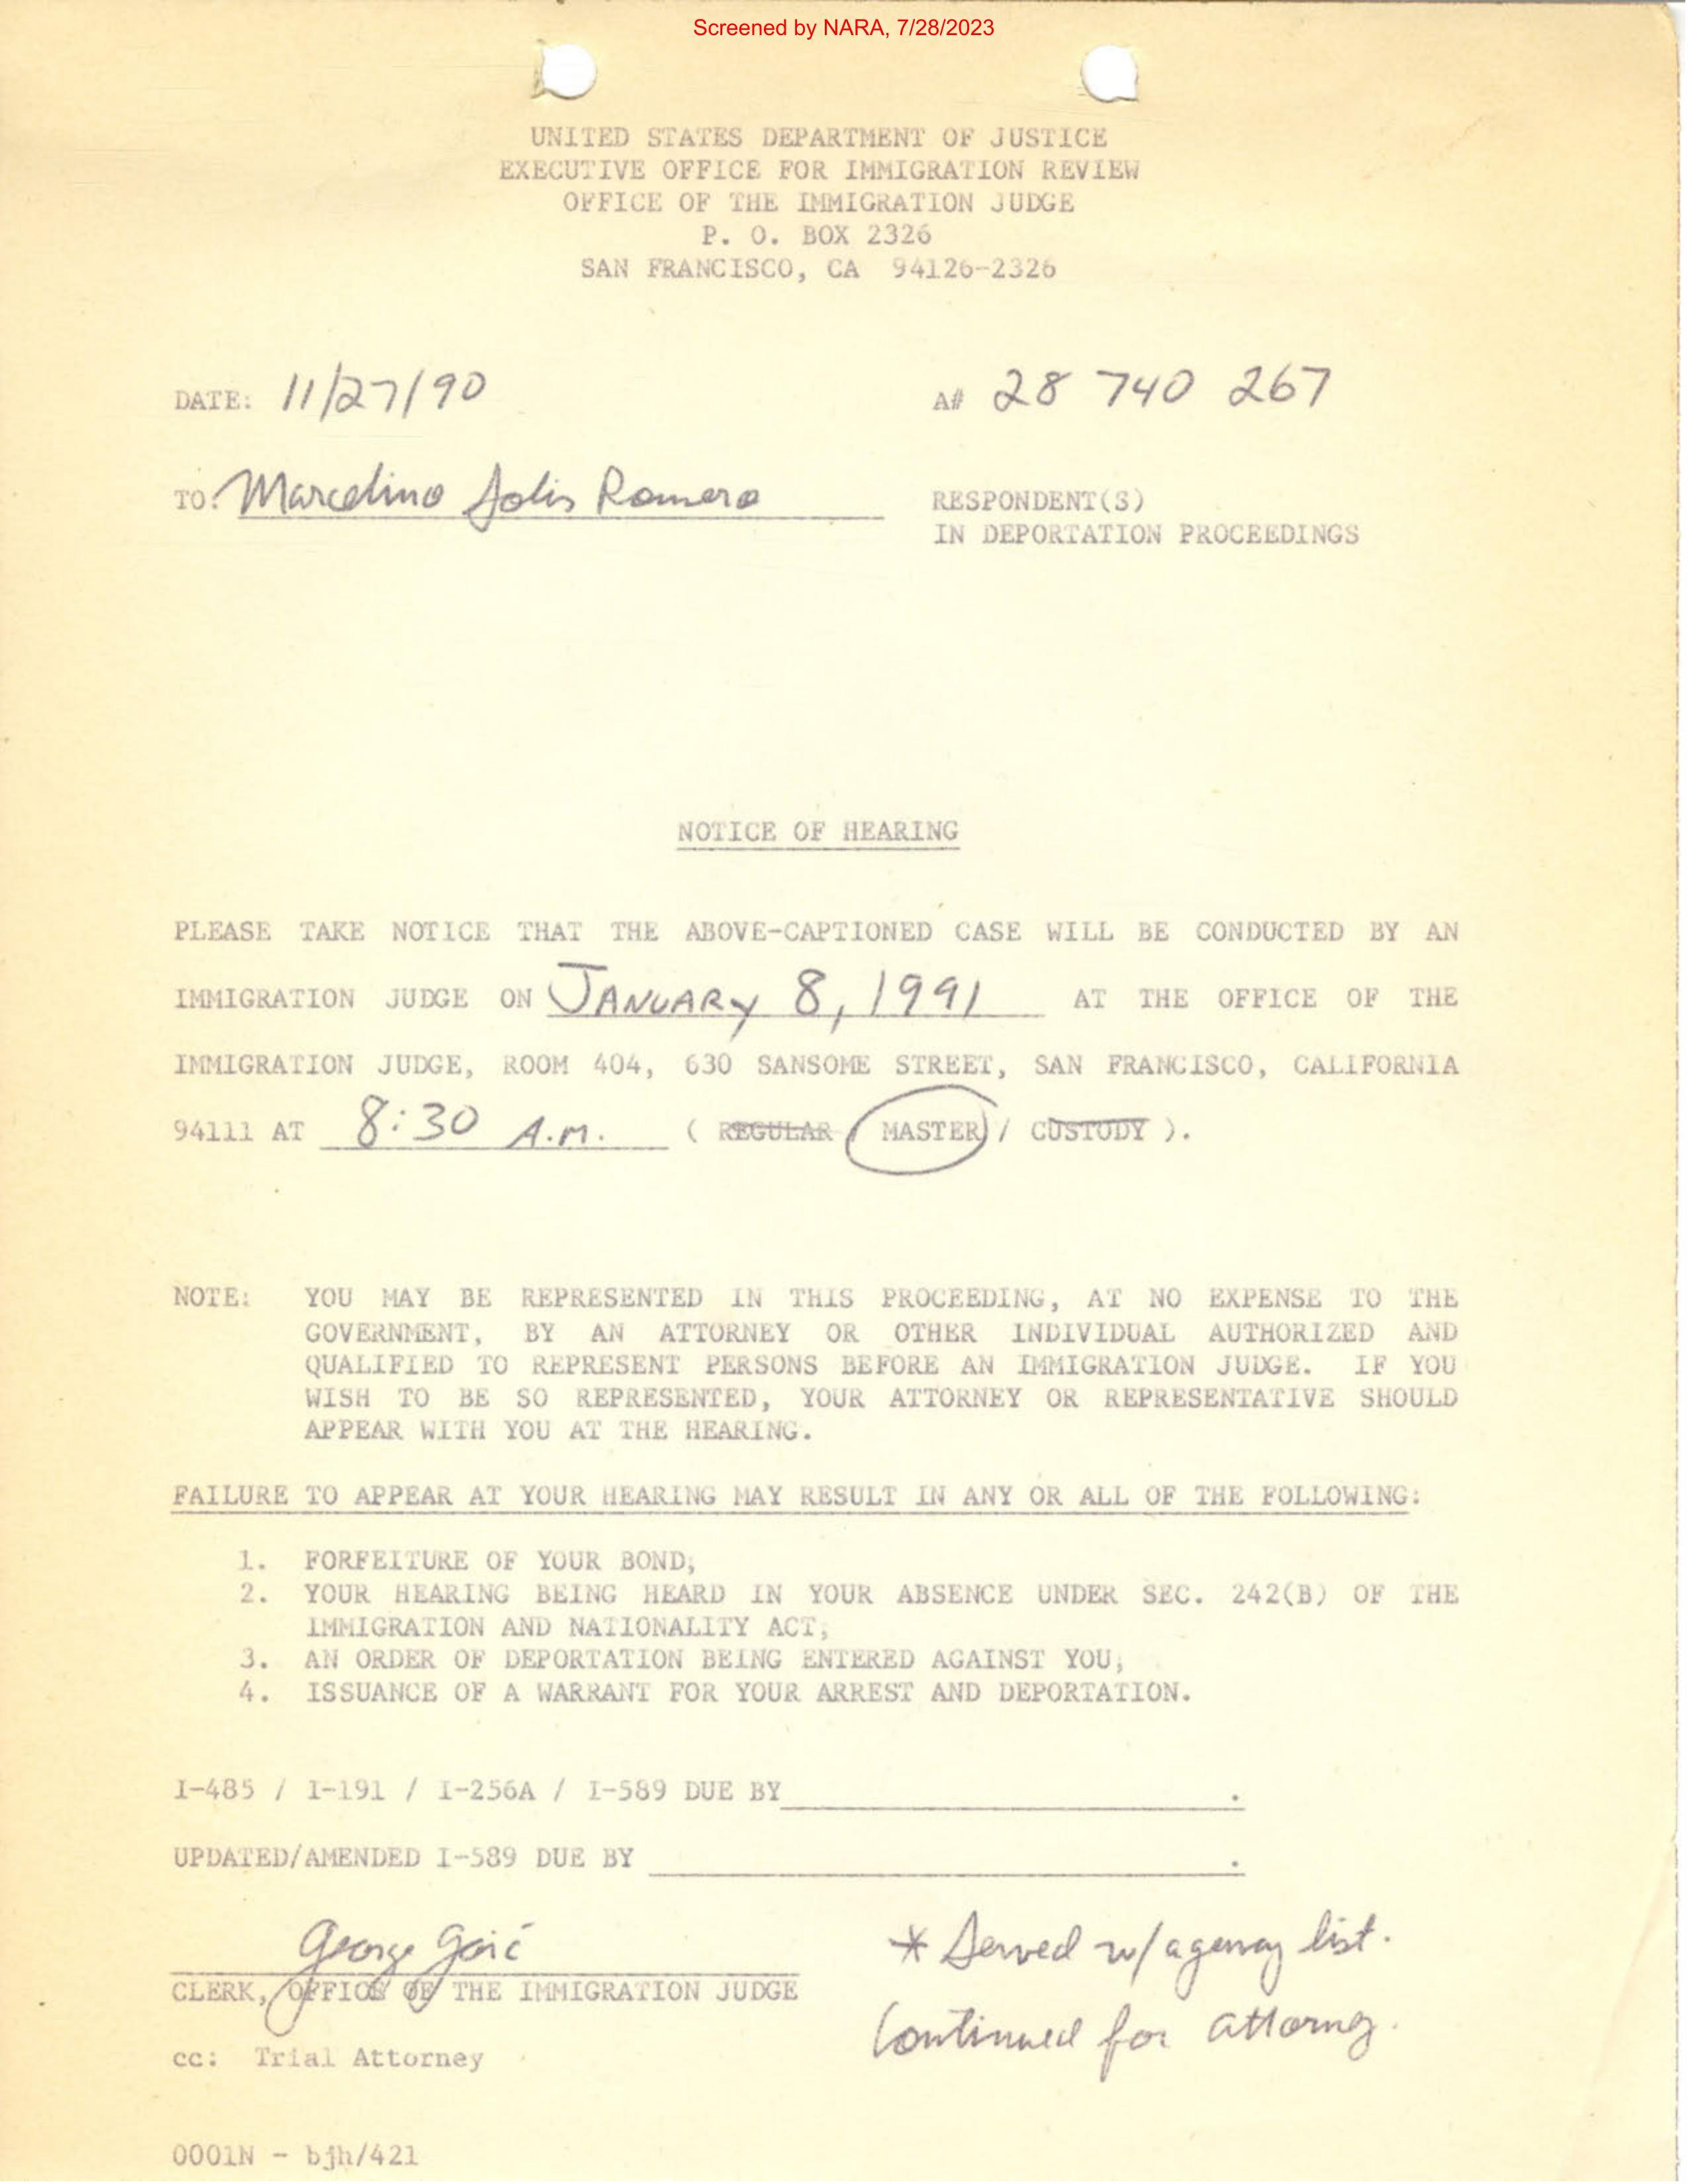 Screened by NARA, 7/28/2023
UNITED STATES DEPARTMENT OF JUSTICE
EXECUTIVE OFFICE FOR IMMIGRATION REVIEW
OFFICE OF THE IMMIGRATION JUDGE
P. O. BOX 2326
SAN FRANCISCO, CA 94126-2326
DATE: 11/27/90 A# 28 740 267
TO: Marcelino Solis Romero RESPONDENT(S)
IN DEPORTATION PROCEEDINGS
NOTICE OF HEARING
PLEASE TAKE NOTICE THAT THE ABOVE-CAPTIONED CASE WILL BE CONDUCTED BY AN
IMMIGRATION JUDGE ON JANUARY 8, 1991 AT THE OFFICE OF THE
IMMIGRATION JUDGE, ROOM 404, 630 SANSOME STREET, SAN FRANCISCO, CALIFORNIA
94111 AT 8:30 A.M. ( REGULAR / MASTER / CUSTODY ).
NOTE: YOU MAY BE REPRESENTED IN THIS PROCEEDING, AT NO EXPENSE TO THE
GOVERNMENT, BY AN ATTORNEY OR OTHER INDIVIDUAL AUTHORIZED AND
QUALIFIED TO REPRESENT PERSONS BEFORE AN IMMIGRATION JUDGE. IF YOU
WISH TO BE SO REPRESENTED, YOUR ATTORNEY OR REPRESENTATIVE SHOULD
APPEAR WITH YOU AT THE HEARING.
FAILURE TO APPEAR AT YOUR HEARING MAY RESULT IN ANY OR ALL OF THE FOLLOWING:
1. FORFEITURE OF YOUR BOND;
2. YOUR HEARING BEING HEARD IN YOUR ABSENCE UNDER SEC. 242(B) OF THE
IMMIGRATION AND NATIONALITY ACT;
3. AN ORDER OF DEPORTATION BEING ENTERED AGAINST YOU;
4. ISSUANCE OF A WARRANT FOR YOUR ARREST AND DEPORTATION.
I-485 / I-191 / I-256A / I-589 DUE BY .
UPDATED/AMENDED I-589 DUE BY .
George * Served w/ agency list.
CLERK, OFFICE OF THE IMMIGRATION JUDGE
Continued for attorney.
cc: Trial Attorney
0001N - bjh/421